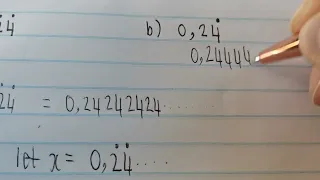 2̇4̇
b) 0,24̇
0,24444
2̇4̇ = 0,24242424......
let x = 0,2̇4̇....